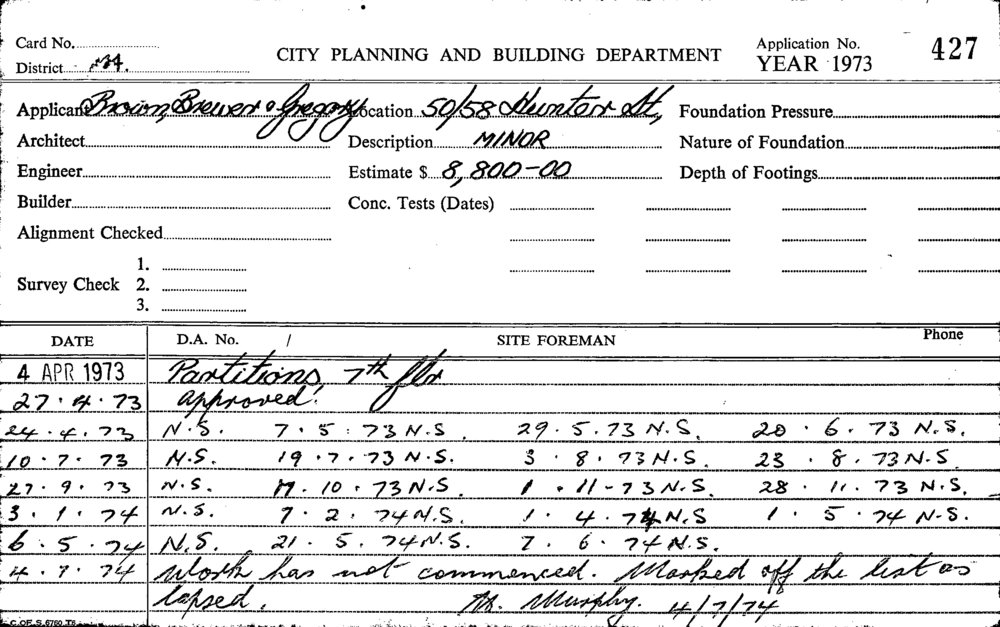 Card No.
District
CITY PLANNING AND BUILDING DEPARTMENT
Application No.
YEAR 1973
427
Applicant Brown, Brewer & Gregory Location 50/58 Hunter St, Foundation Pressure
Architect Description MINOR Nature of Foundation
Engineer Estimate $ 8,800-00 Depth of Footings
Builder Conc. Tests (Dates)
Alignment Checked
1.
Survey Check 2.
3.
DATE D.A. No. / SITE FOREMAN Phone
4 APR 1973 Partitions, 7th flr
27.4.73 approved.
24.4.73 N.S. 7.5.73 N.S. 29.5.73 N.S. 20.6.73 N.S.
10.7.73 N.S. 19.7.73 N.S. 3.8.73 N.S. 23.8.73 N.S
27.9.73 N.S. 17.10.73 N.S. 1.11-73 N.S. 28.11.73 N.S.
3.1.74 N.S. 7.2.74 N.S. 1.4.74 N.S 1.5.74 N.S.
6.5.74 N.S. 21.5.74 N.S. 7.6.74 N.S.
4.7.74 Work has not commenced. Marked off the list as
lapsed. Murphy. 4/7/74
C. OF. S. 6760 T6